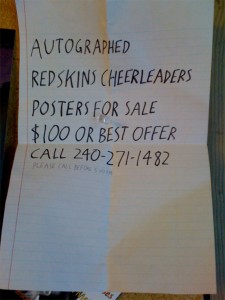 AUTOGRAPHED
REDSKINS CHEERLEADERS
POSTERS FOR SALE
$100 OR BEST OFFER
CALL 240-271-1482
PLEASE CALL